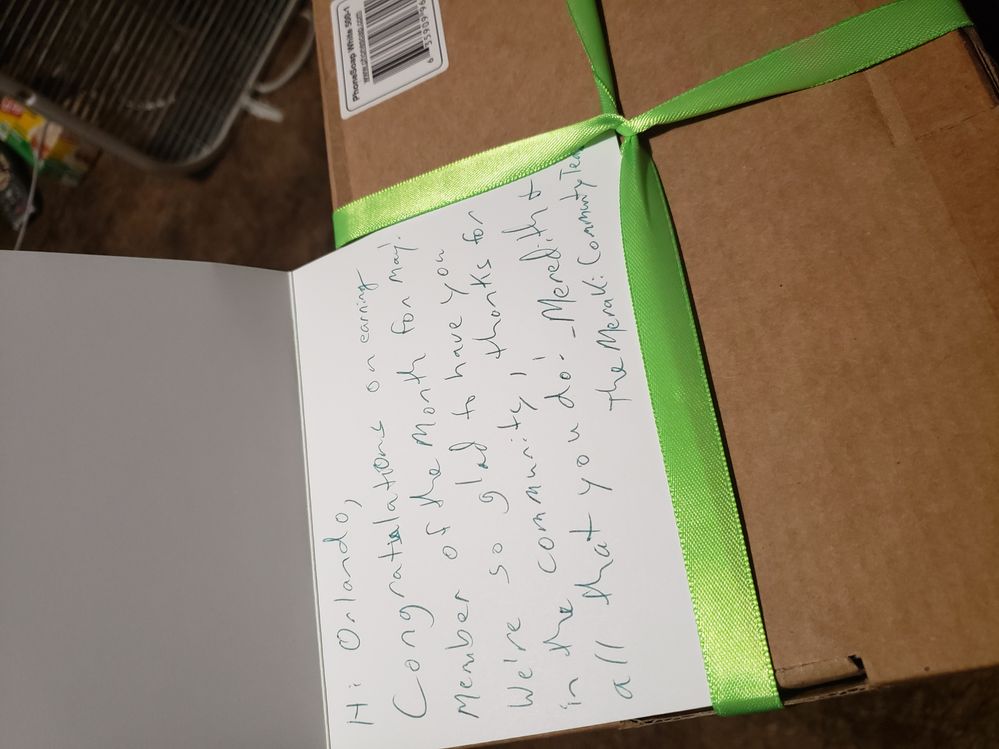 PhoneSoap White 500-1
Hi Orlando,
Congratulations on earning
Member of the Month for May!
We're so glad to have you
in the community, thanks for
all that you do! -Meredith &
The Meraki Community Team